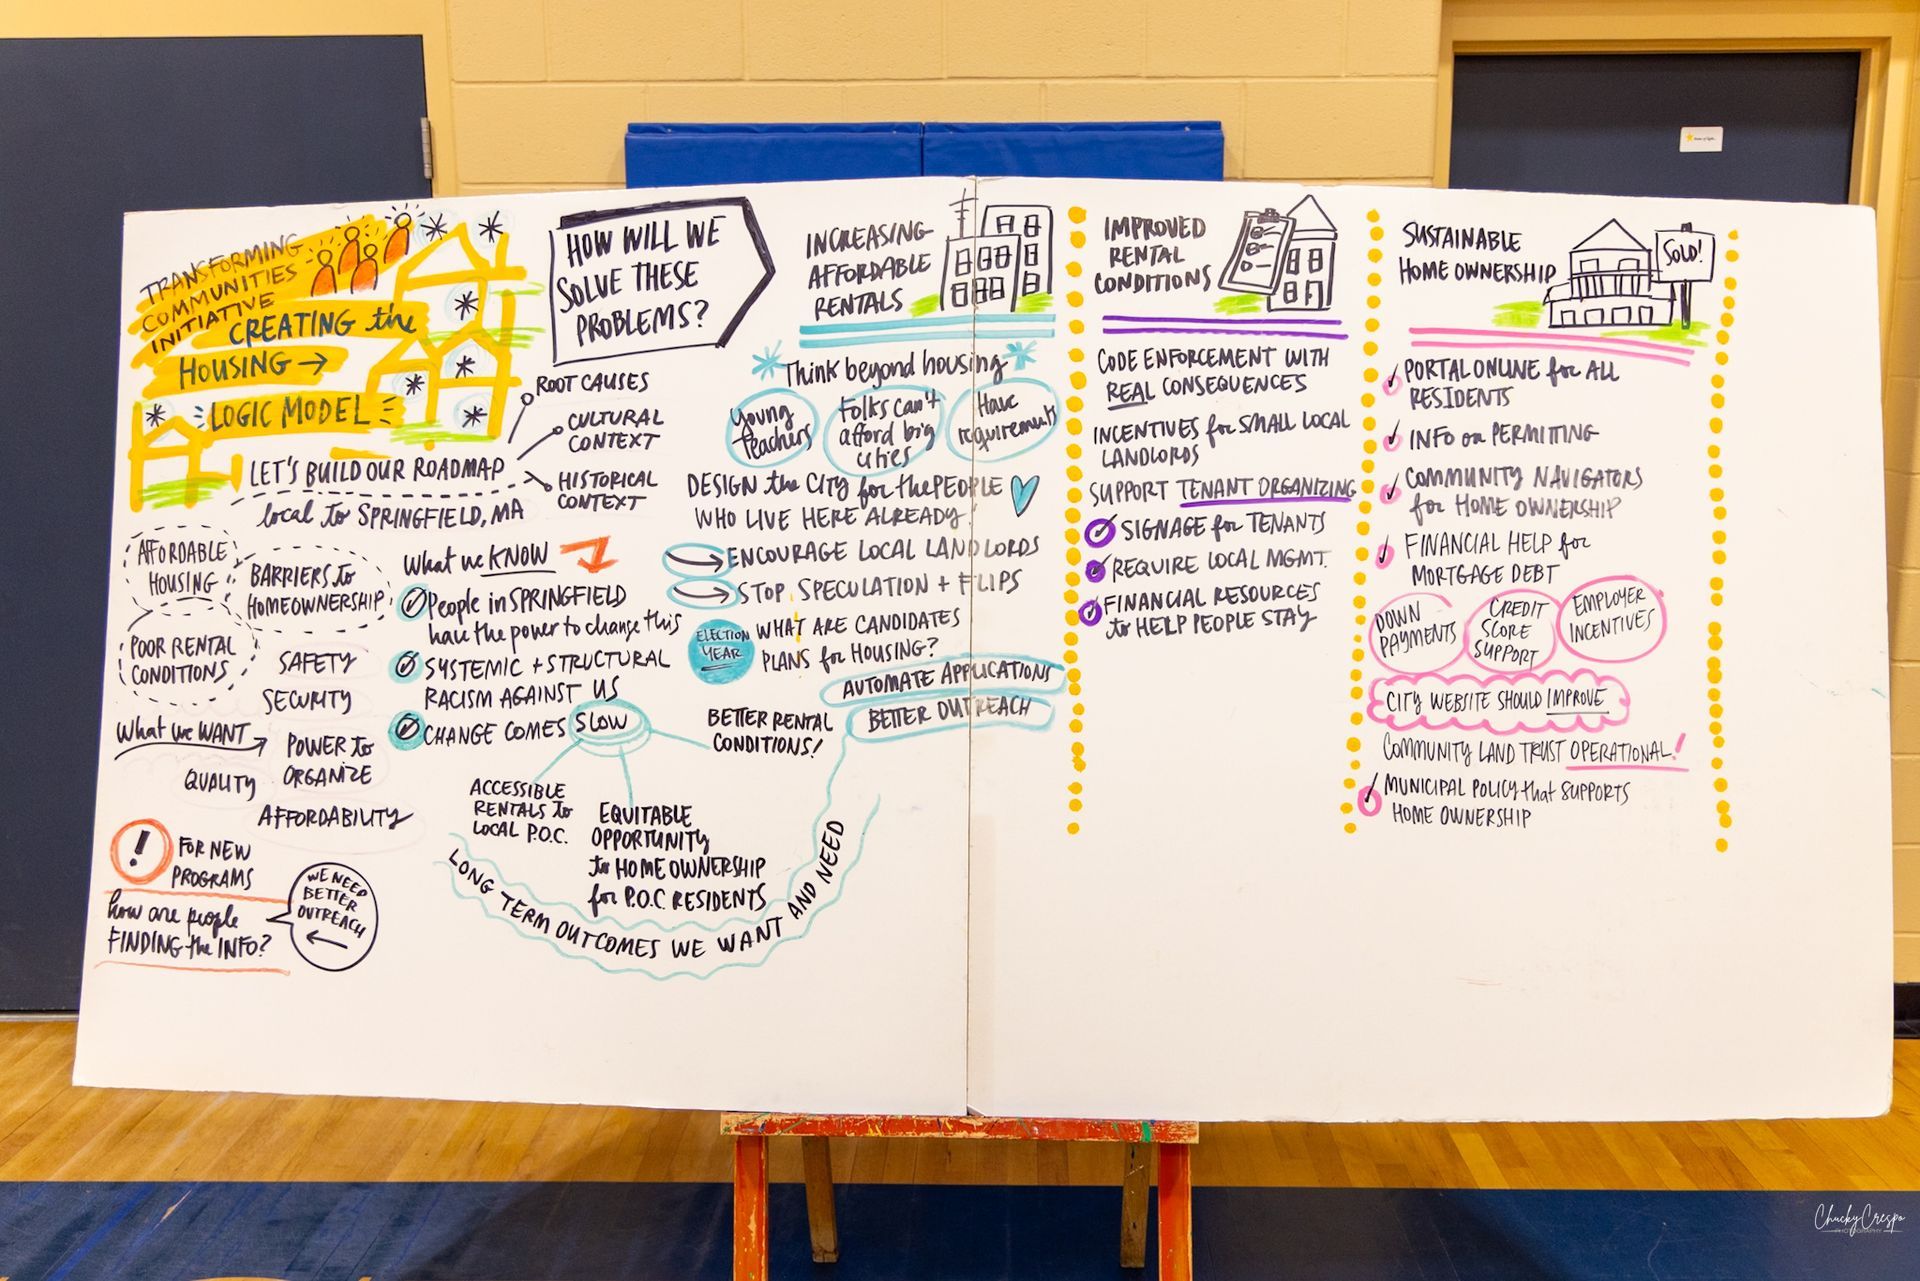 TRANSFORMING
COMMUNITIES
INITIATIVE
CREATING the
HOUSING →
LOGIC MODEL
LET'S BUILD OUR ROADMAP
local to SPRINGFIELD, MA
ROOT CAUSES
CULTURAL
CONTEXT
HISTORICAL
CONTEXT
AFFORDABLE
HOUSING
BARRIERS to
HOMEOWNERSHIP
POOR RENTAL
CONDITIONS
SAFETY
SECURITY
What we WANT
POWER to
ORGANIZE
QUALITY
AFFORDABILITY
!
FOR NEW
PROGRAMS
how are people
FINDING the INFO?
WE NEED
BETTER
OUTREACH
What we KNOW
People in SPRINGFIELD
have the power to change this
SYSTEMIC + STRUCTURAL
RACISM AGAINST US
CHANGE COMES SLOW
ACCESSIBLE
RENTALS to
LOCAL P.O.C.
EQUITABLE
OPPORTUNITY
to HOME OWNERSHIP
for P.O.C. RESIDENTS
BETTER RENTAL
CONDITIONS!
LONG TERM OUTCOMES WE WANT AND NEED
HOW WILL WE
SOLVE THESE
PROBLEMS?
INCREASING
AFFORDABLE
RENTALS
Think beyond housing
Young
Teachers
Folks can't
afford big
cities
Have
requirements
DESIGN the CITY for the PEOPLE
WHO LIVE HERE ALREADY!
ENCOURAGE LOCAL LANDLORDS
STOP SPECULATION + FLIPS
ELECTION
YEAR
WHAT ARE CANDIDATES
PLANS for HOUSING?
AUTOMATE APPLICATIONS
BETTER OUTREACH
IMPROVED
RENTAL
CONDITIONS
CODE ENFORCEMENT WITH
REAL CONSEQUENCES
INCENTIVES for SMALL LOCAL
LANDLORDS
SUPPORT TENANT ORGANIZING
SIGNAGE for TENANTS
REQUIRE LOCAL MGMT.
FINANCIAL RESOURCES
to HELP PEOPLE STAY
SUSTAINABLE
HOME OWNERSHIP
SOLD!
PORTAL ONLINE for ALL
RESIDENTS
INFO on PERMITTING
COMMUNITY NAVIGATORS
for HOME OWNERSHIP
FINANCIAL HELP for
MORTGAGE DEBT
DOWN
PAYMENTS
CREDIT
SCORE
SUPPORT
EMPLOYER
INCENTIVES
CITY WEBSITE SHOULD IMPROVE
COMMUNITY LAND TRUST OPERATIONAL!
MUNICIPAL POLICY that SUPPORTS
HOME OWNERSHIP
ChuckyCrespo
PHOTOGRAPHY